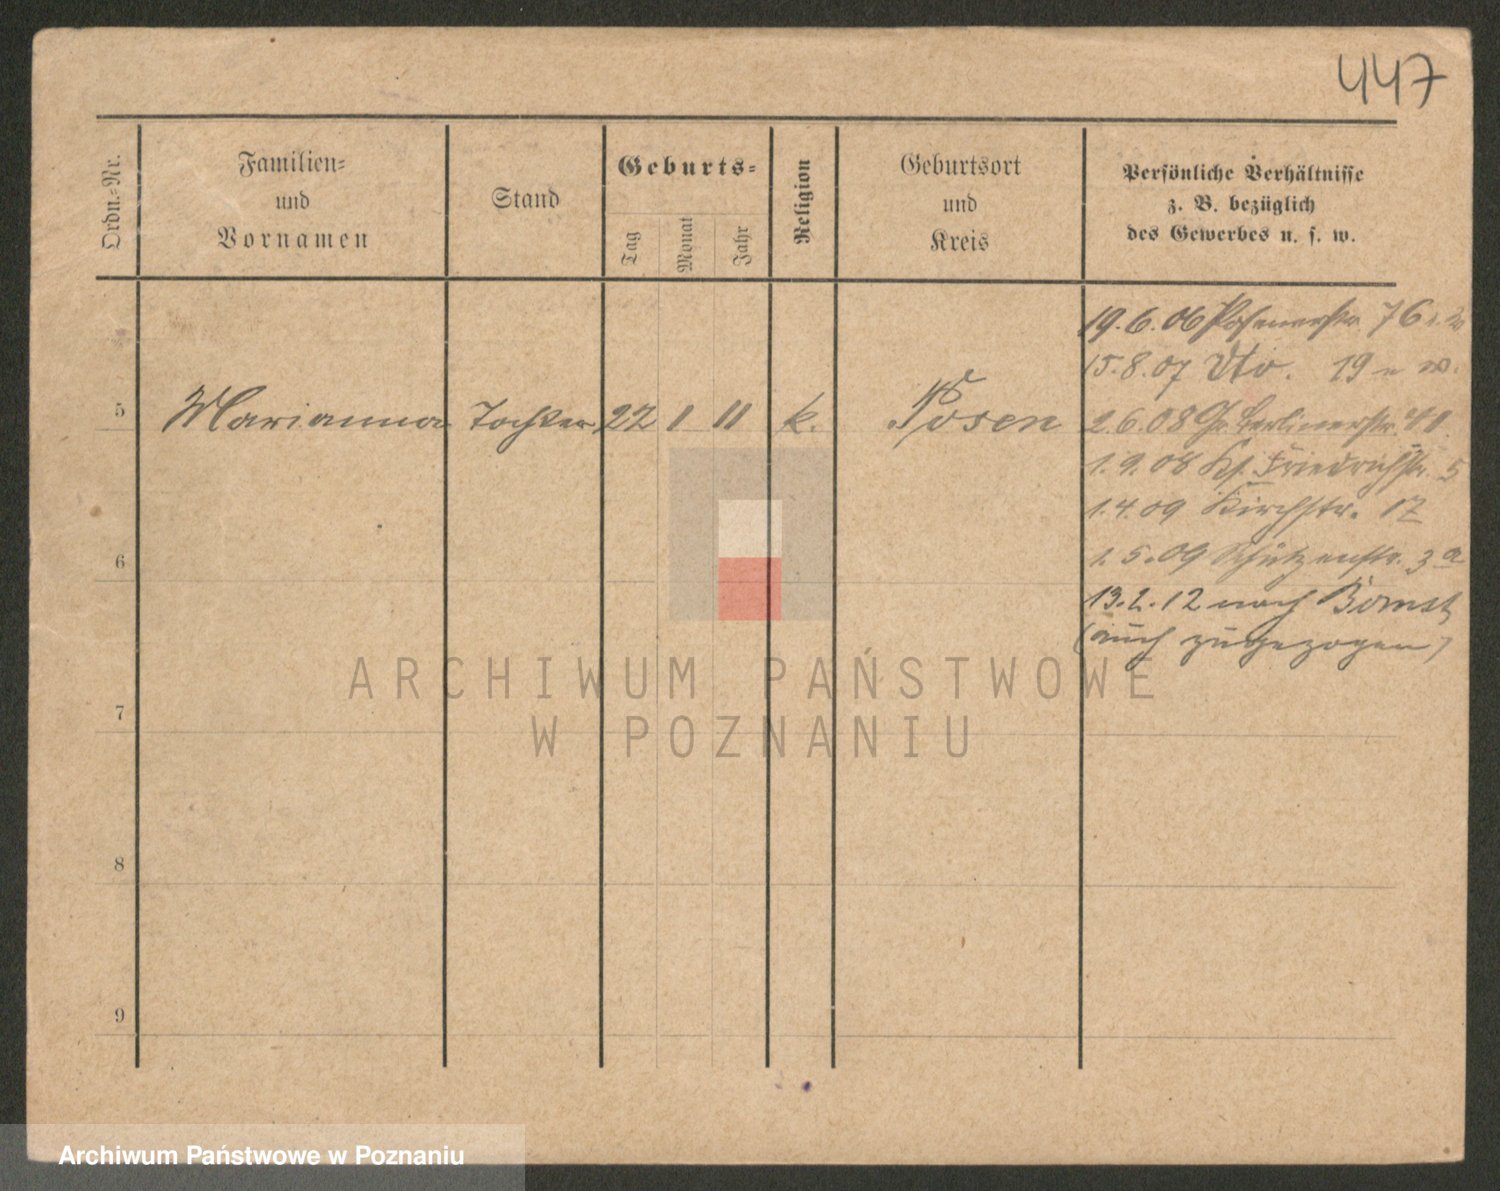 447
Ordn.-Nr.
Familien-
und
Vornamen
Stand
Geburts-
Tag
Monat
Jahr
Religion
Geburtsort
und
Kreis
Persönliche Verhältnisse
z. B. bezüglich
des Gewerbes u. s. w.
19.6.06 Posenerstr. 76
15.8.07 Dto. 19
5 Marianna Tochter 22 1 11 k. Posen
2.6.08 Gr. Berlinerstr.
1.9.08 Ks. Friedrichstr. 5
1.4.09 Kirchstr. 17
6
1.5.09 Schützenstr. 3a
13.2.12 nach Bomst
(auch zugezogen)
ARCHIWUM PAŃSTWOWE
W POZNANIU
7
8
9
Archiwum Państwowe w Poznaniu